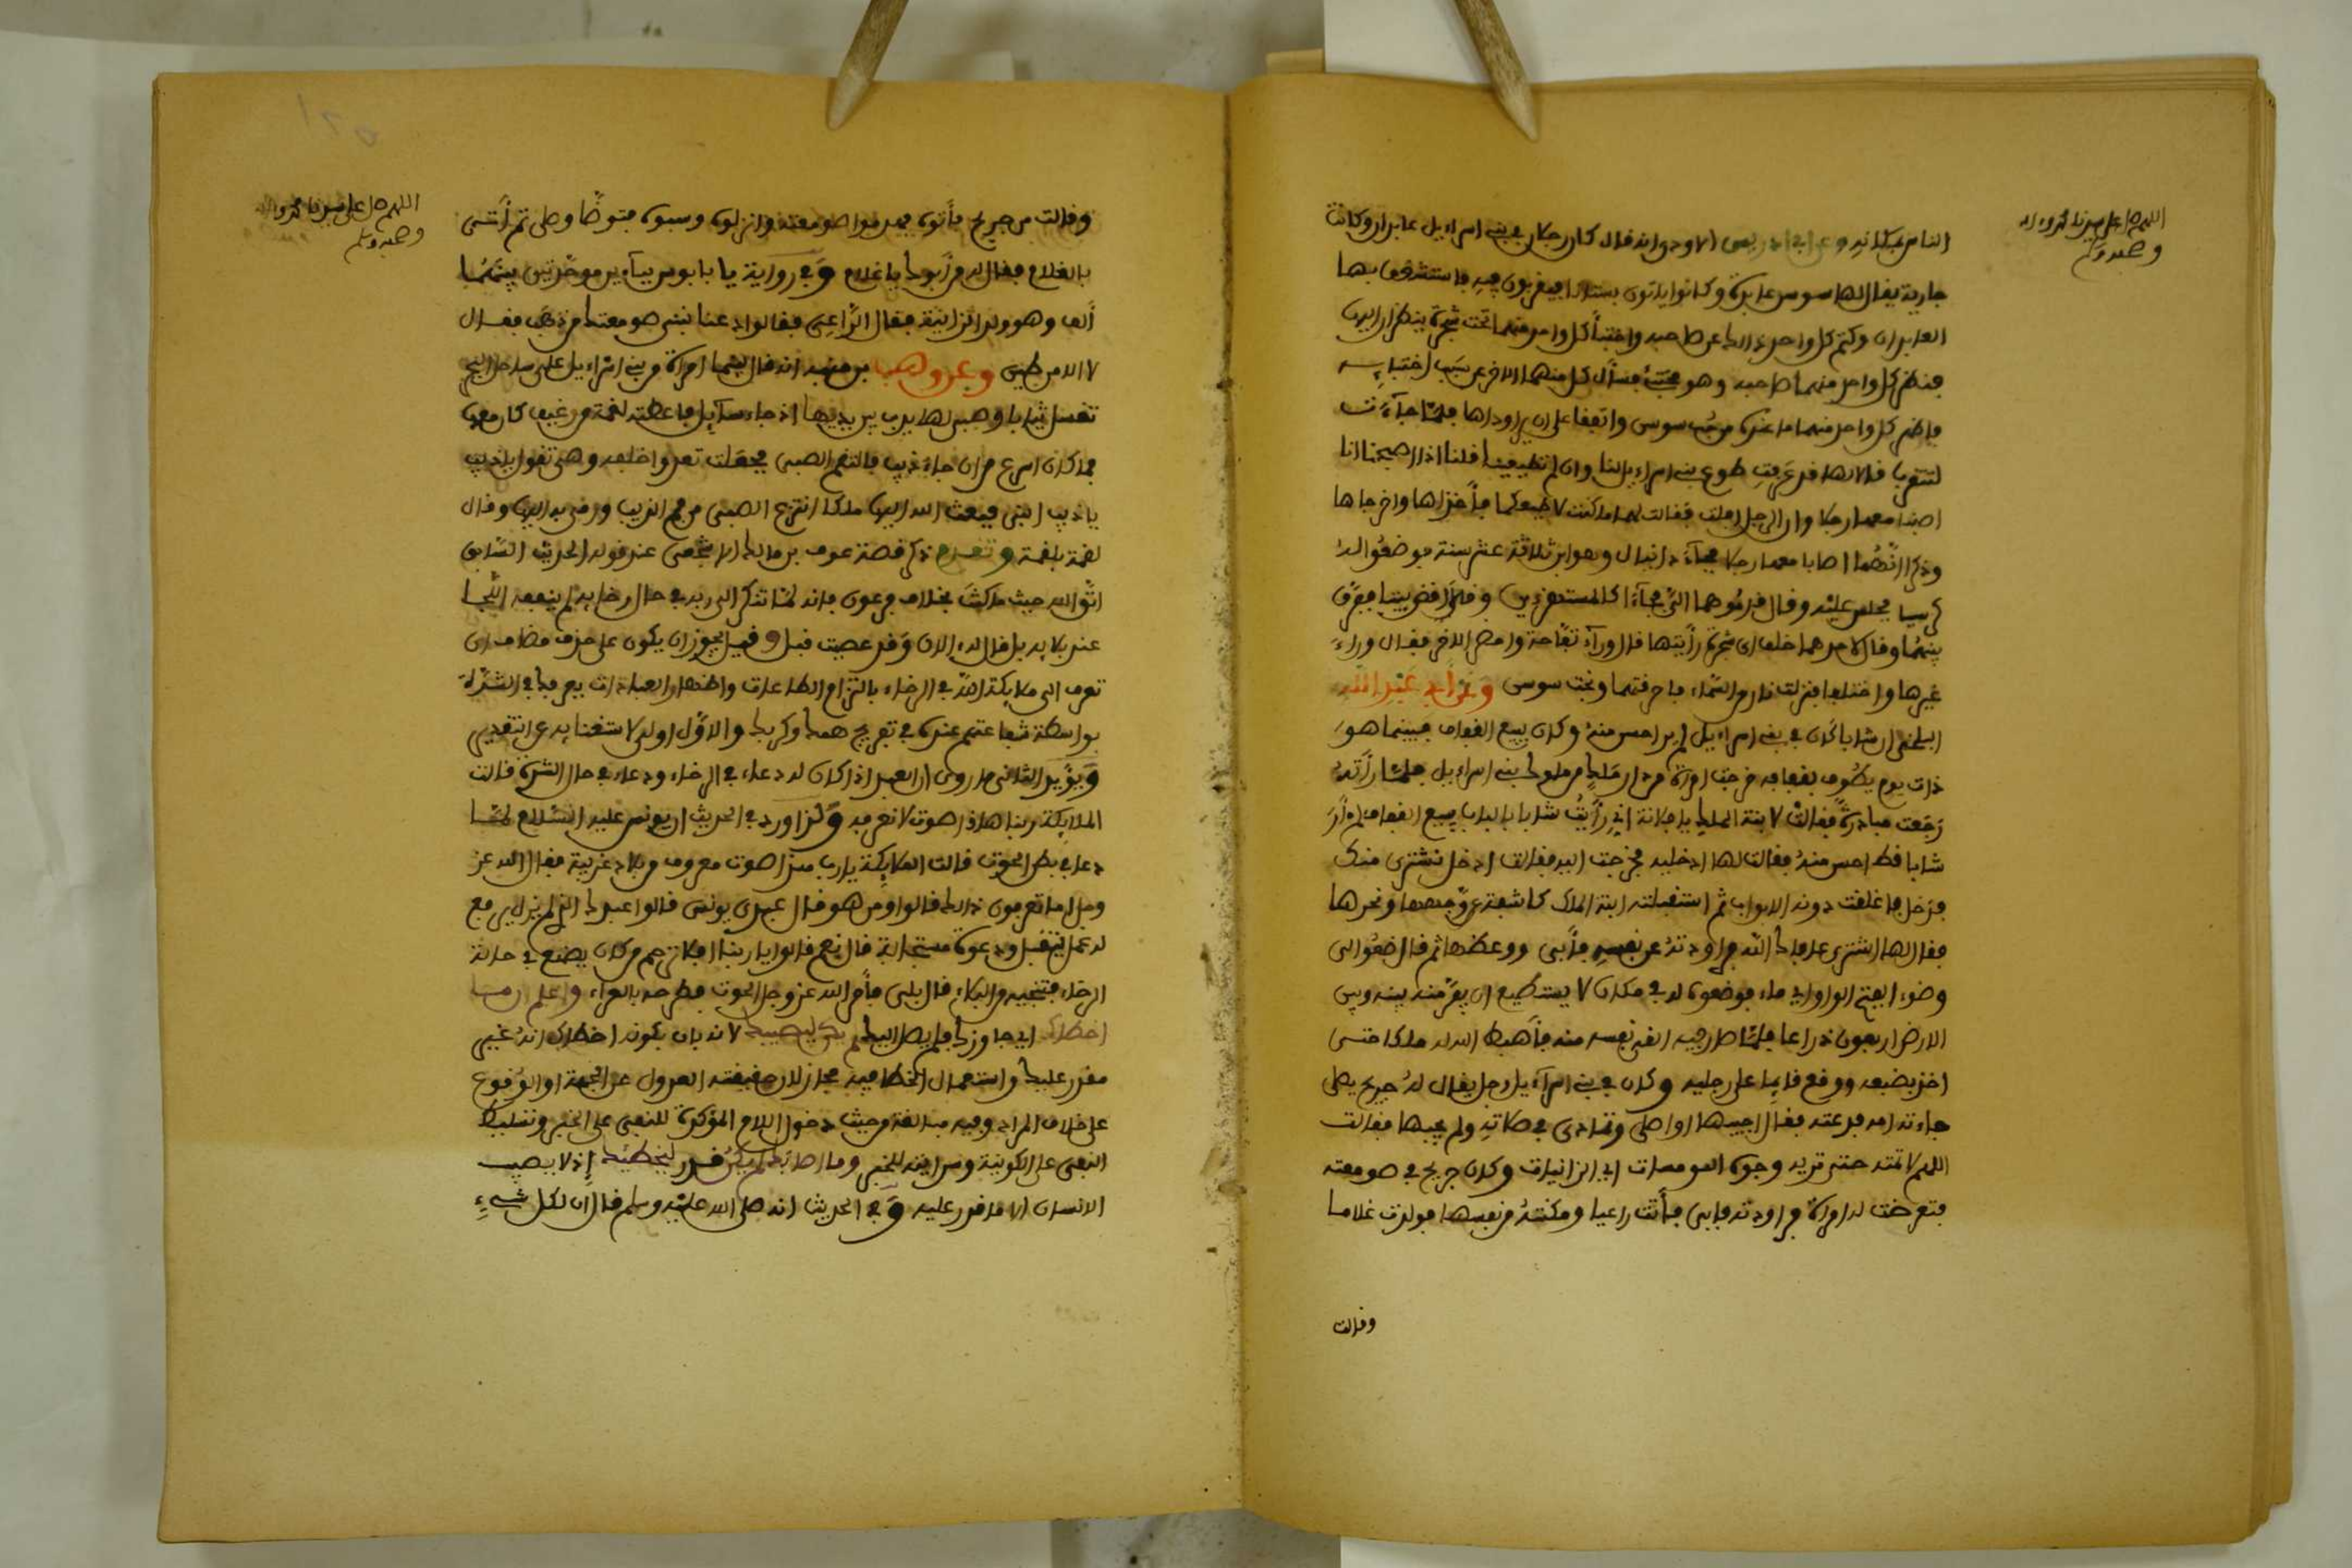 اللهم صل على سيدنا محمد وءاله
وصحبه وسلم
الناس وعن ابي ادريس الاودي انه قال كان رجلان في بني اسراءيل عابدان وكانت
جارية يقال لها سوسن عابدة وكانوا ياتون بستانا فيتقربون فيه فاستشرف بها
العابدان وكتم كل واحد ذالك عن صاحبه واختبأ كل واحد منهما تحت شجرة ينظران اليها
فنظر كل واحد منهما صاحبه وهو مختبئ فسأل كل منهما الاخر عن سبب اختبايه
فاظهر كل واحد منهما ما عنده من حب سوسن واتفقا على ان يراوداها فلما جآءت
لتتقرب قالا لها قد عرفت طوع بني اسراءيل لنا وان لم تطيعينا قلنا اذا اصبحنا انا
اصبنا معها رجلا وان الرجل افلت فقالت لهما ما كنت لاطيعكما فأخذاها واخرجاها
وذكرا انهما اصابا معها رجلا فجآء دانيال وهو ابن ثلاثة عشر سنة فوضعوا له
كرسيا فجلس عليه وقال قدموهما الي فجآءا كالمستهزءين وقال اقض بيننا ففرق
بينهما وقال لاحدهما خلف اي شجرة رأيتها قال ورآء تفاحة واحضر الاخر فقال وراء
غيرها واختلفا فنزلت نار من السماء فاحرقتهما ونجت سوسن وعن أبي عبد الله
البلخي ان شابا كان في بني اسراءيل لم ير احسن منه وكان يبيع القفاف فبينما هو
ذات يوم يطوف بقفافه خرجت امرأة من دار ملك من ملوك بني اسراءيل فلما رأته
رجعت مبادرة فقالت لابنة الملك يا فلانة اني رأيت شابا بالباب يبيع القفاف لم أر
شابا قط احسن منه فقالت لها ادخليه فخرجت اليه فقالت ادخل نشتري منك
فدخل فاغلقت دونه الابواب ثم استقبلته ابنة الملك كاشفة عن وجهها ونحرها
فقال لها استتري عافاك الله فراودته عن نفسه فأبى ووعظها ثم قال ضعوا لي
وضوءا بفتح الواو اي ماء فوضعوه له في مكان لا يستطيع ان يفر منه بينه وبين
الارض اربعون ذراعا فلما صار فيه القى نفسه منه فأهبط الله له ملكا حتى
اخذ بضبعه ووقع قايما على رجليه وكان في بني اسرآءيل رجل يقال له جريج يصلي
جاءته امه فدعته فقال اجيبها او اصلي وتمادى في صلاته ولم يجبها فقالت
اللهم لا تمته حتى تريه وجوه المومسات اي الزانيات وكان جريج في صومعته
فتعرضت له امرأة فراودته فابى فأتت راعيا ومكنته من نفسها فولدت غلاما
وقالت
اللهم صل على سيدنا محمد وءاله
وصحبه وسلم
وقالت من جريج فأتوه فهدموا صومعته وانزلوه وسبوه فتوضأ وصلى ثم أتى
بالغلام فقال له من أبوك يا غلام وفي رواية يا بابوس
ألف وهو ولد الزانية فقال الراعي فقالوا دعنا نبني صومعتك من ذهب فقال
لا الا من طين وعن وهب بن منبه انه قال بينما امرأة من بني اسراءيل على ساحل البحر
تغسل ثيابا وصبي لها يدب بين يديها اذ جاء سآيل فاعطته لقمة من رغيف كان معها
فما كان اسرع من ان جاء ذيب فالتقم الصبي فجعلت تعدوا خلفه وهي تقول يا ذيب
يا ذيب ابني فبعث الله اليها ملكا انتزع الصبي من فم الذيب ورمى به اليها وقال
لقمة بلقمة وتقدم ذكر قصة عوف بن مالك الاشجعي عند قوله الحديث السابق
اتق الله حيث ما كنت بخلاف فرعون فانه لما تذكر الى ربه في حال رخايه لم ينفعه التجا
عند بلايه بل قال له ءالان وقد عصيت قبل وقيل يجوز ان يكون على حذف مضاف اي
تعرف الى ملايكة الله في الرخاء بالتزام الطاعات واظهار العبادات يعرفك في الشدة
بواسطة شفاعتهم عنده في تفريج همك وكربك والاول اولى لاستغنايه عن التقدير
ويؤيد الثاني ما روي ان العبد اذا كان له دعاء في الرخاء ودعاء في حال الشدة قالت
الملايكة ربنا هاذا صوت لا نعرفه وكذا ورد في الحديث ان يونس عليه السلام لما
دعا في بطن الحوت قالت الملايكة يا رب هذا صوت معروف من بلاد غريبة فقال الله عز
وجل اما تعرفون ذالك قالوا ومن هو قال عبدي يونس قالوا عبدك الذي لم يزل يرفع
له عمل يتقبل ودعوة مستجابة قال نعم قالوا يا ربنا افلا ترحم من كان يصنع في حالة
الرخاء فتنجيه من البلاء قال بلى فأمر الله عز وجل الحوت فطرحه بالعراء واعلم ان ما
اخطاك اي جاوزك فلم يصل اليك لم يكن ليصيبك لانه بان بكونه اخطاك انه غير
مقدر عليك واستعمال الخطا فيه مجاز لان حقيقته العدول عن الجهة او الوقوع
على خلاف المراد وفيه مبالغة من حيث دخول اللام المؤكدة للنفي على الخبر وتسليط
النفي على الكونية وسرايته للخبر وما اصابك لم يكن ليخطئك إذ لا يصيب
الانسان الا ما قدر عليه وفي الحديث انه صلى الله عليه وسلم قال ان لكل شيء